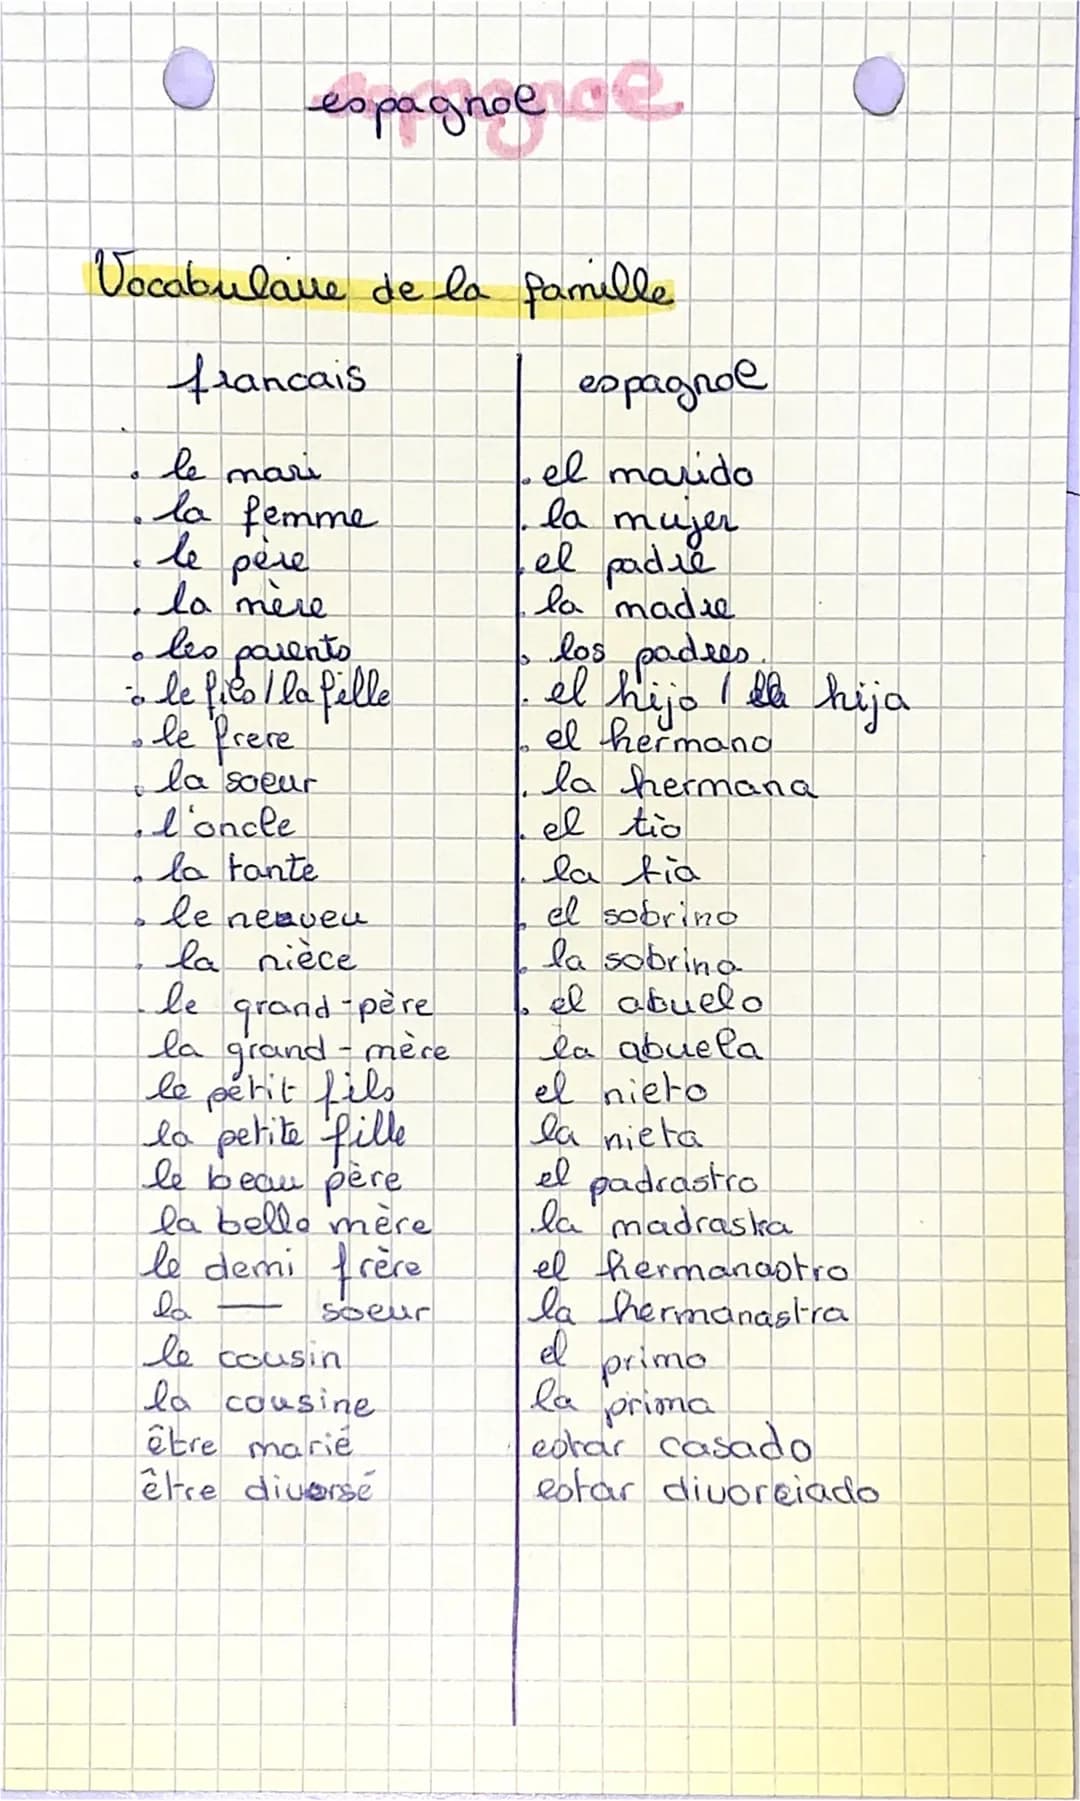 espagnol
Vocabulaire de la famille
francais espagnol
. le mari . el marido
. la femme . la mujer
. le père . el padre
. la mère . la madre
. les parents . los padres.
. le fils / la fille . el hijo / la hija
. le frere . el hermano
. la soeur . la hermana
. l'oncle . el tio
. la tante . la tià
. le neuveu . el sobrino
. la nièce . la sobrina
. le grand-père . el abuelo
la grand-mère la abuela
le petit fils el nieto
la petite fille la nieta
le beau père el padrastro
la belle mère la madraska
le demi frère el hermanastro
la — soeur la hermanastra
le cousin el primo
la cousine la prima
être marié estar casado
être diversé estar divorciado